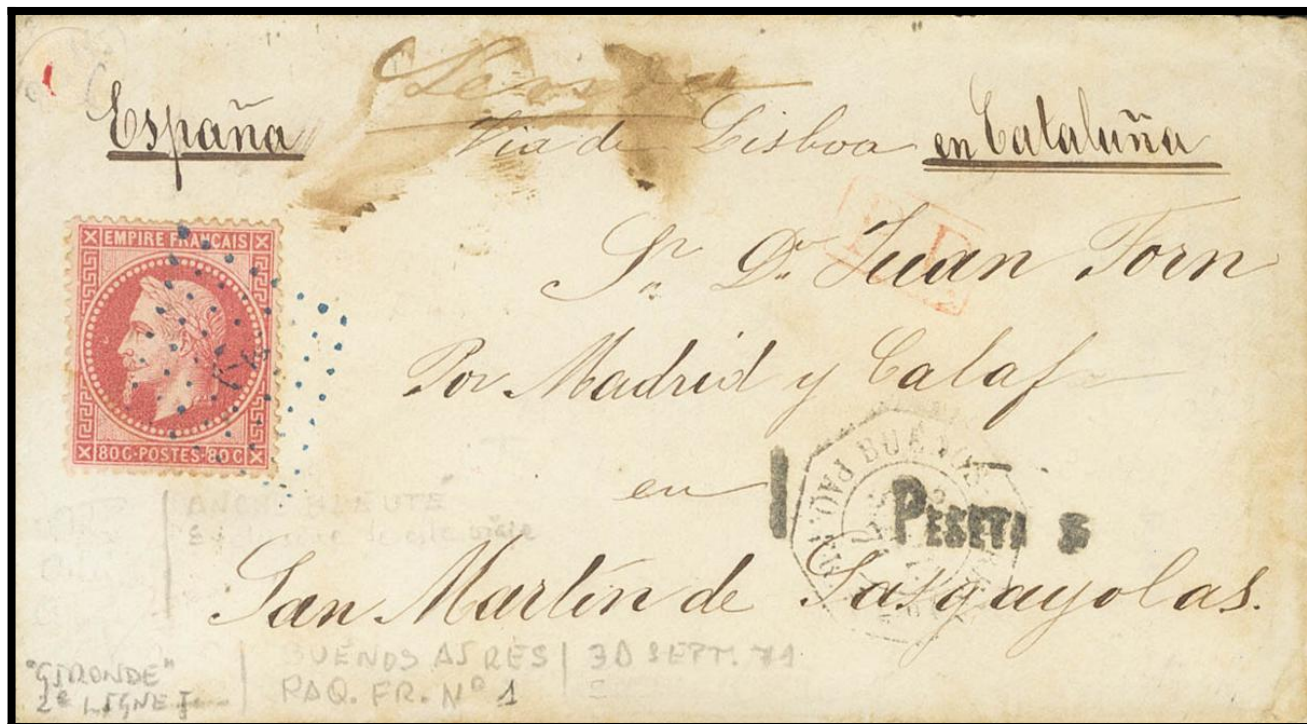 España
Via de Lisboa en Cataluña
EMPIRE FRANÇAIS
80 C·POSTES·80 C
Sr. Dn. Juan Forn
Por Madrid y Calaf
en
1 PESETAS
BUENOS
PAQ.
San Martín de Sasgayolas.
"GIRONDE"
2e LIGNE
BUENOS AIRES
PAQ. FR. Nº 1
30 SEPT. 71